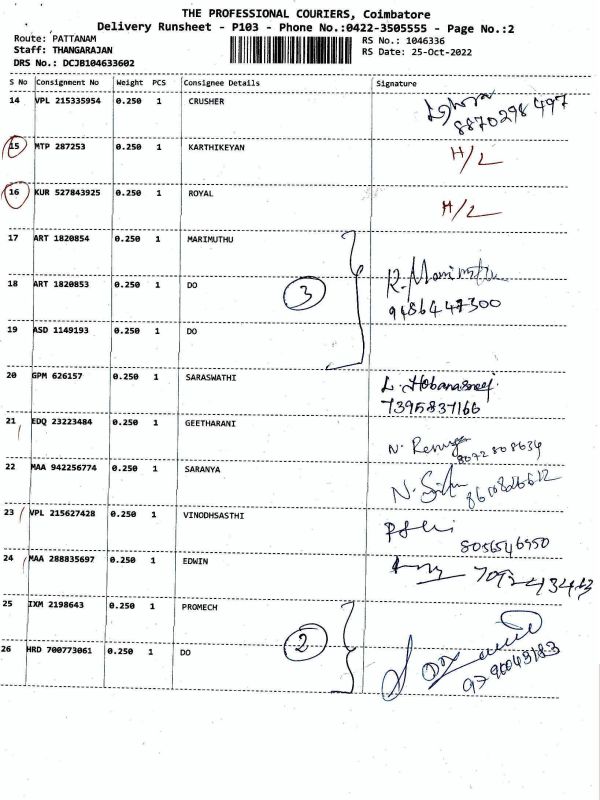 THE PROFESSIONAL COURIERS, Coimbatore
Delivery Runsheet - P103 - Phone No.:0422-3505555 - Page No.:2
Route: PATTANAM
RS No.: 1046336
Staff: THANGARAJAN
RS Date: 25-Oct-2022
DRS No.: DCJB104633602
S No Consignment No Weight PCS Consignee Details Signature
14 VPL 215335954 0.250 1 CRUSHER
8870298497
15 MTP 287253 0.250 1 KARTHIKEYAN H/L
16 KUR 527843925 0.250 1 ROYAL H/L
17 ART 1820854 0.250 1 MARIMUTHU
18 ART 1820853 0.250 1 DO 3
9486447300
19 ASD 1149193 0.250 1 DO
20 GPM 626157 0.250 1 SARASWATHI
7395837166
21 EDQ 23223484 0.250 1 GEETHARANI N.
8072808634
22 MAA 942256774 0.250 1 SARANYA N.
23 VPL 215627428 0.250 1 VINODHSASTHI
8056546950
24 MAA 288835697 0.250 1 EDWIN
25 IXM 2198643 0.250 1 PROMECH
2
26 HRD 700773061 0.250 1 DO